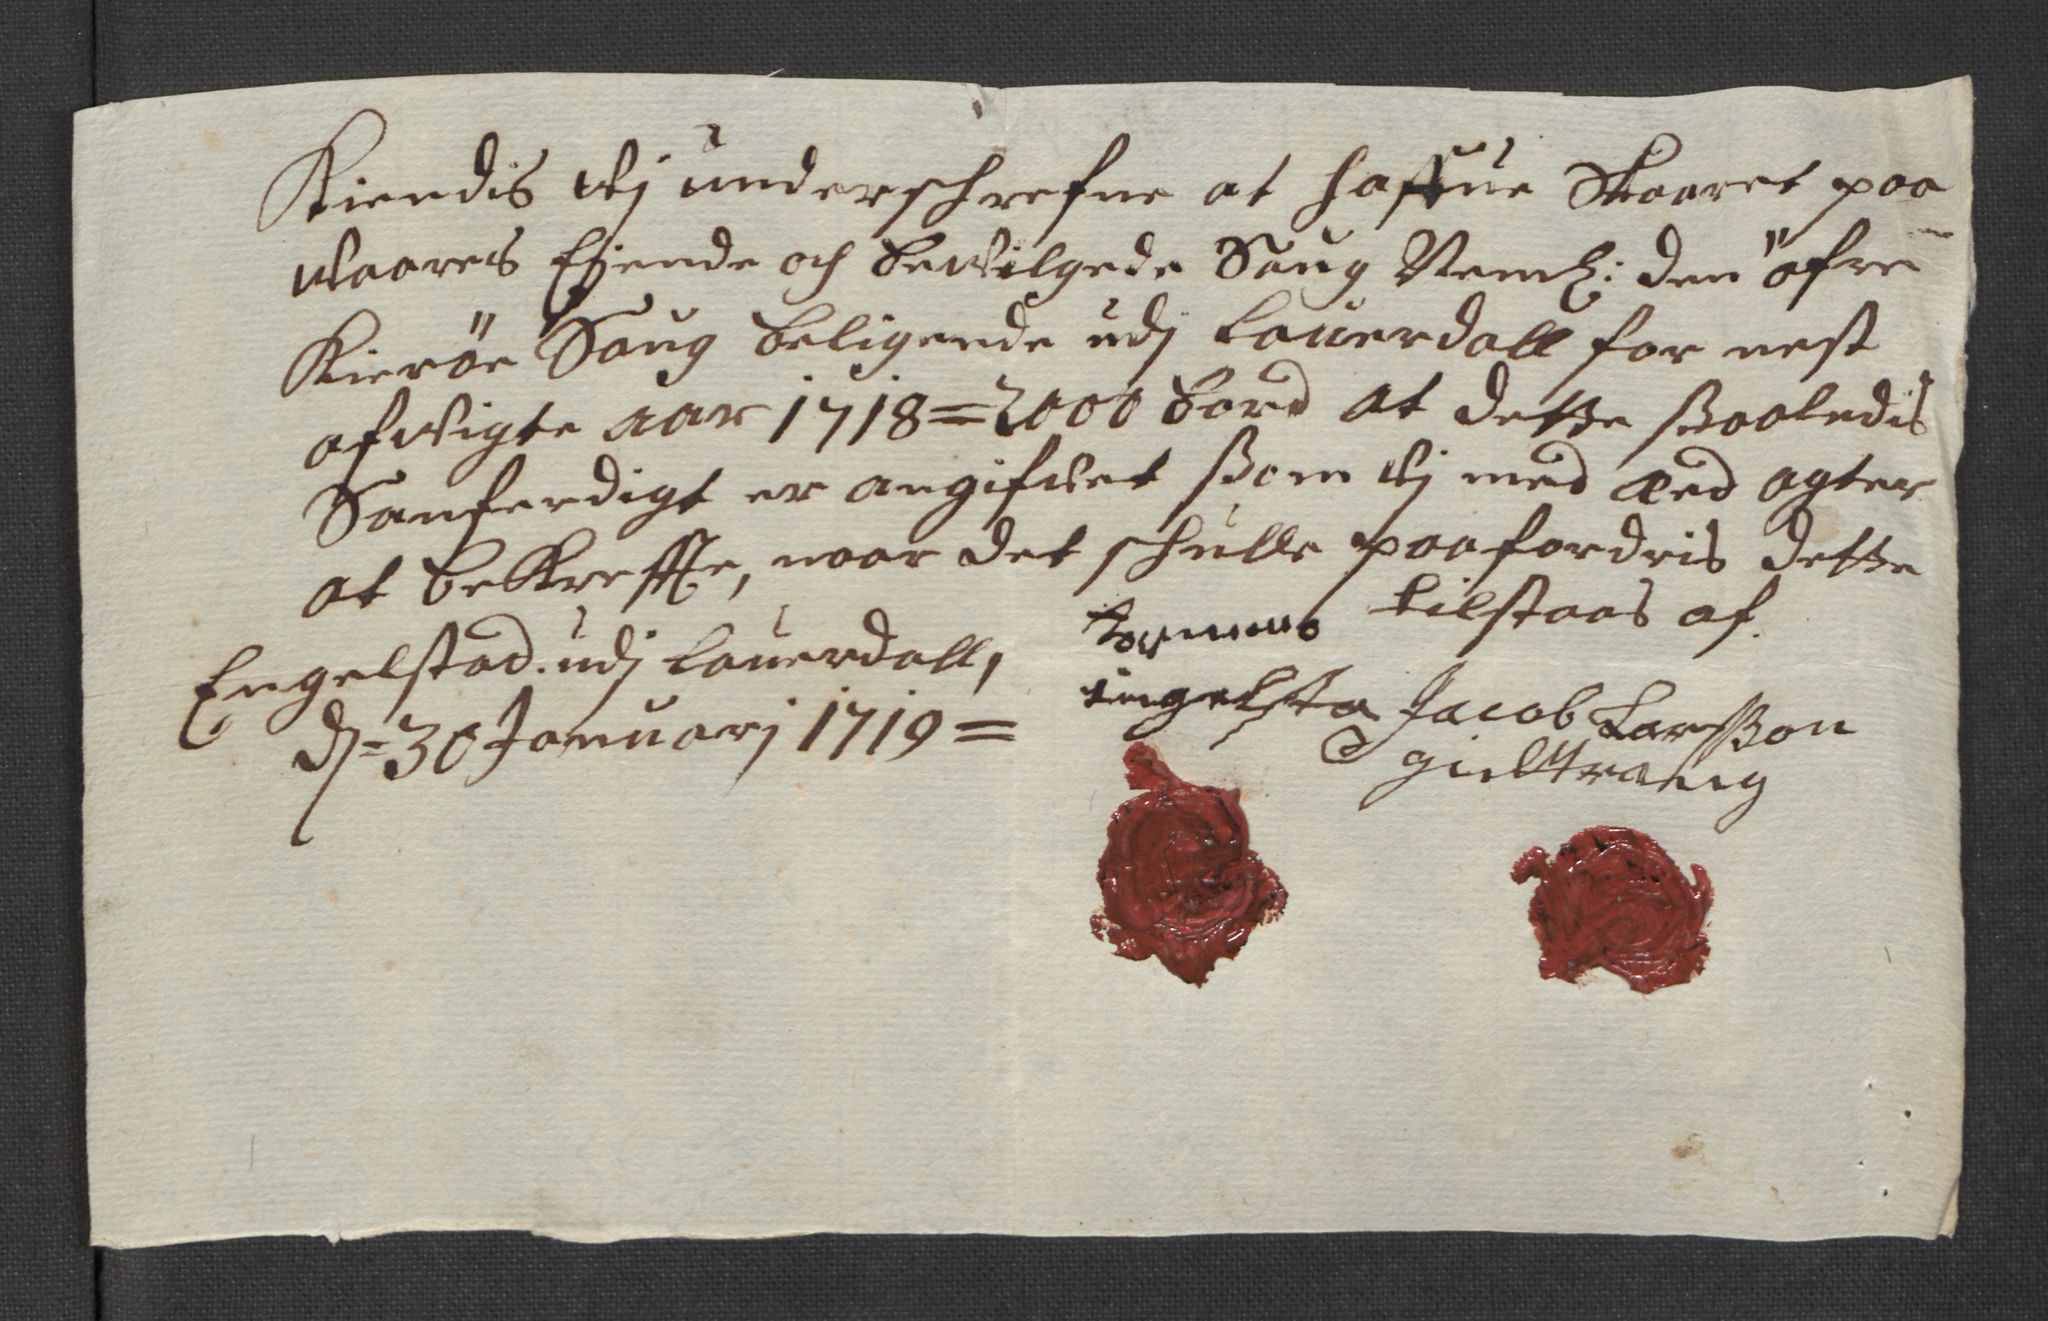 Kiendis Wj underschrefne at haffue Skaaret paa
Waares Ejende och bewilgede Saug Neml: den öfre
Kieröe Saug beligende udj Lauerdall for nest
afwigte aar 1718 = 2000 bord at dette ßaaledis
Sanferdigt er angifwet ßom Wj med æed agter
at bekreffte, naar det schulle paafordris dette
tilstaas af.
Engelstad udj Lauerdall,
dj = 30 Januarj 1719 =
ingelsta
Jacob Larsßon